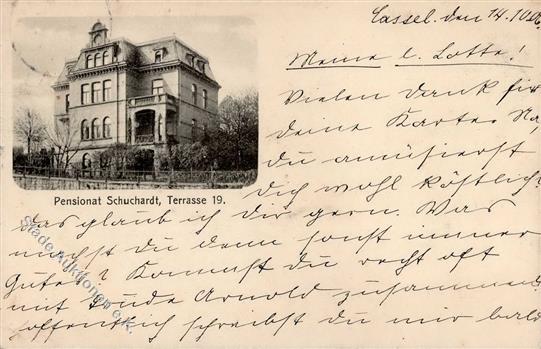 Cassel, den 14.10.06
Meine l. Lotte!
Vielen Dank für
deine Karte. Na,
du amüsierst
dich wohl köstlich?
Pensionat Schuchardt, Terrasse 19.
das glaub ich dir gern. Was
machst du denn sonst immer
Gutes? Kommst du recht oft
mit Trude Arnold zusammen?
Hoffentlich schreibst du mir bald